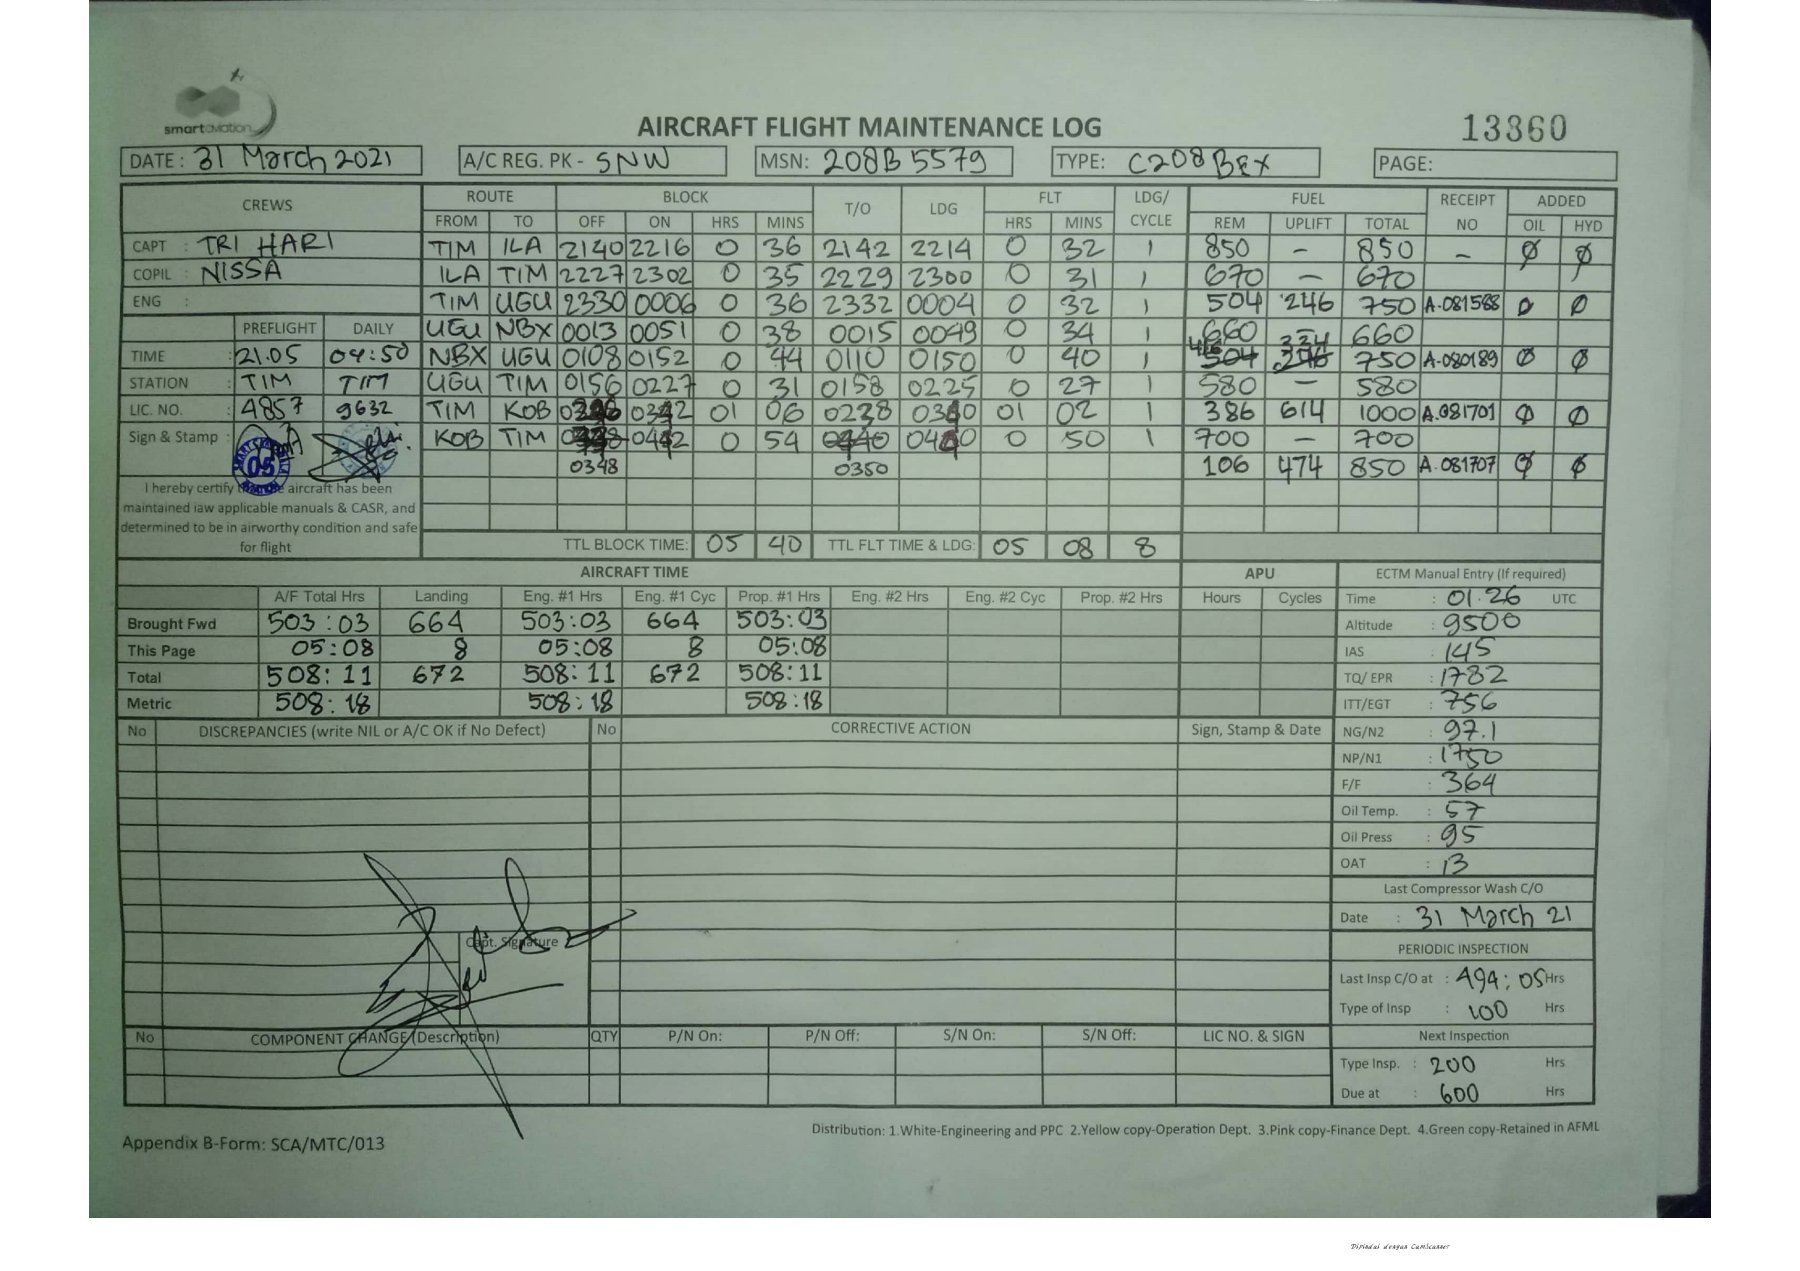 smartaviation
AIRCRAFT FLIGHT MAINTENANCE LOG
13360
DATE : 31 March 2021 A/C REG. PK - SNW MSN: 208B 5579 TYPE: C208B EX PAGE:
CREWS ROUTE BLOCK T/O LDG FLT LDG/ CYCLE FUEL RECEIPT NO ADDED
FROM TO OFF ON HRS MINS HRS MINS REM UPLIFT TOTAL OIL HYD
CAPT : TRI HARI TIM ILA 2140 2216 0 36 2142 2214 0 32 1 850 – 850 – Ø Ø
COPIL : NISSA ILA TIM 2227 2302 0 35 2229 2300 0 31 1 670 – 670
ENG : TIM UGU 2330 0006 0 36 2332 0004 0 32 1 504 246 750 A.081588 0 Ø
PREFLIGHT DAILY UGU NBX 0013 0051 0 38 0015 0049 0 34 1 660 – 660
TIME : 21.05 09:50 NBX UGU 0108 0152 0 44 0110 0150 0 40 1 416 334 750 A.080189 Ø Ø
STATION : TIM TIM UGU TIM 0156 0227 0 31 0158 0225 0 27 1 580 – 580
LIC. NO. : 4857 9632 TIM KOB 0342 01 06 0238 0340 01 02 1 386 614 1000 A.081701 Ø Ø
Sign & Stamp : KOB TIM 0442 0 54 0440 0440 0 50 1 700 – 700
05
0348 0350 106 474 850 A.081707 Ø Ø
I hereby certify aircraft has been
maintained iaw applicable manuals & CASR, and
determined to be in airworthy condition and safe
for flight
TTL BLOCK TIME: 05 40 TTL FLT TIME & LDG: 05 08 8
AIRCRAFT TIME APU ECTM Manual Entry (If required)
A/F Total Hrs Landing Eng. #1 Hrs Eng. #1 Cyc Prop. #1 Hrs Eng. #2 Hrs Eng. #2 Cyc Prop. #2 Hrs Hours Cycles Time : 01.26 UTC
Brought Fwd 503:03 664 503:03 664 503:03 Altitude : 9500
This Page 05:08 8 05:08 8 05:08 IAS : 145
Total 508:11 672 508:11 672 508:11 TQ/ EPR : 1782
Metric 508:18 508:18 508:18 ITT/EGT : 756
No DISCREPANCIES (write NIL or A/C OK if No Defect) No CORRECTIVE ACTION Sign, Stamp & Date NG/N2 : 97.1
NP/N1 : 1750
F/F : 364
Oil Temp. : 57
Oil Press : 95
OAT : 13
Last Compressor Wash C/O
Date : 31 March 21
Capt. Signature
PERIODIC INSPECTION
Last Insp C/O at : 494:05 Hrs
Type of Insp : 100 Hrs
No COMPONENT CHANGE (Description) QTY P/N On: P/N Off: S/N On: S/N Off: LIC NO. & SIGN Next Inspection
Type Insp. : 200 Hrs
Due at : 600 Hrs
Appendix B-Form: SCA/MTC/013
Distribution: 1.White-Engineering and PPC 2.Yellow copy-Operation Dept. 3.Pink copy-Finance Dept. 4.Green copy-Retained in AFML
Dipindai dengan CamScanner